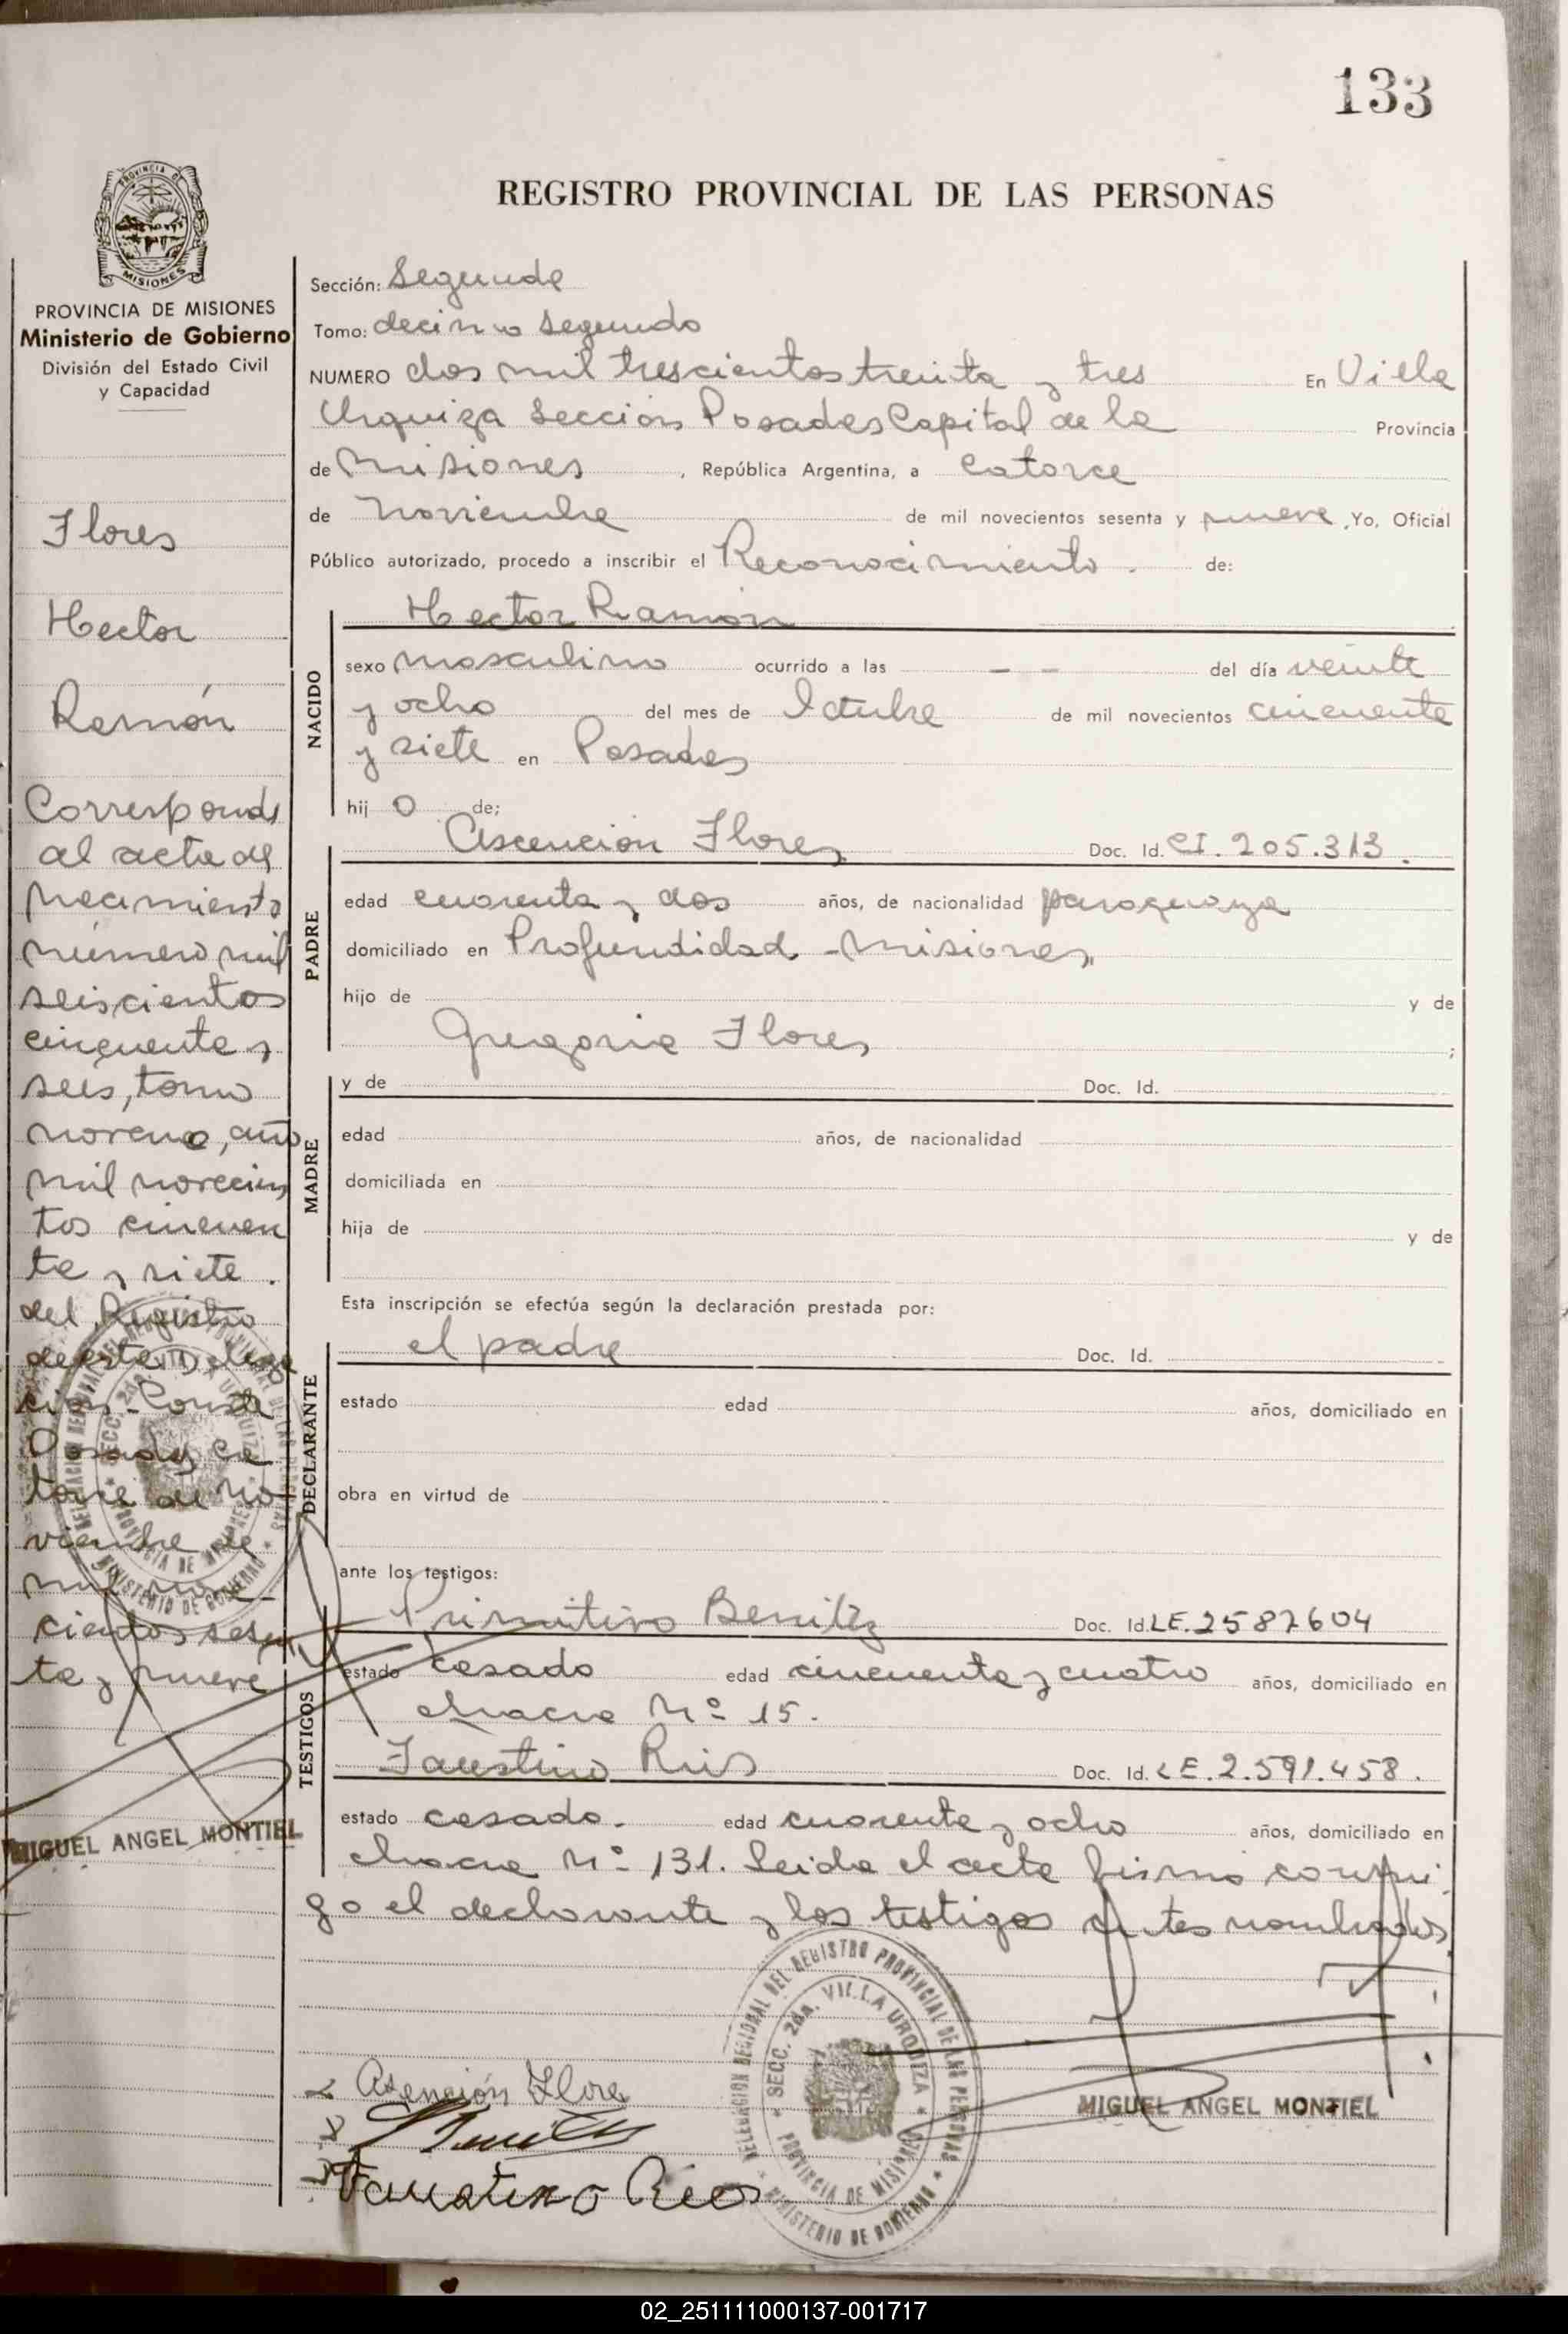 133
REGISTRO PROVINCIAL DE LAS PERSONAS
PROVINCIA DE MISIONES
Ministerio de Gobierno
División del Estado Civil
y Capacidad
Flores
Hector
Ramón
Corresponde
al acta de
nacimiento
número mil
seiscientos
cincuenta y
seis, tomo
noveno, año
mil novecien
tos cincuen
ta y siete.
del Registro
de esta Delega
ción. Conste
Posadas, ca
torce de no
viembre de
mil nove-
cientos sesen
ta y nueve
MIGUEL ANGEL MONTIEL
Sección: Segunda
Tomo: decimo segundo
NUMERO dos mil trescientos treinta y tres En Villa
Urquiza Sección Posadas Capital de la Provincia
de Misiones, República Argentina, a catorce
de Noviembre de mil novecientos sesenta y nueve, Yo, Oficial
Público autorizado, procedo a inscribir el Reconocimiento. de:
NACIDO
Hector Ramón
sexo masculino ocurrido a las - - del día veinte
y ocho del mes de Octubre de mil novecientos cincuenta
y siete en Posadas
hij o de:
PADRE
Ascencion Flores Doc. Id. CI. 205.313.
edad cuarenta y dos años, de nacionalidad paraguaya
domiciliado en Profundidad - Misiones
hijo de y de
Gregoria Flores ;
MADRE
y de Doc. Id.
edad años, de nacionalidad
domiciliada en
hija de y de
Esta inscripción se efectúa según la declaración prestada por:
DECLARANTE
el padre Doc. Id.
estado edad años, domiciliado en
obra en virtud de
ante los testigos:
TESTIGOS
Primitivo Benitez Doc. Id. LE. 2587604
estado casado edad cincuenta y cuatro años, domiciliado en
chacra Nº 15.
Faustino Rios Doc. Id. LE. 2.591.458.
estado casado. edad cuarenta y ocho años, domiciliado en
chacra Nº 131. Leida el acta firma conmi
go el declarante y los testigos antes nombrados
DELEGACION REGIONAL DEL REGISTRO PROVINCIAL DE LAS PERSONAS
SECC. 2da. VILLA URQUIZA
PROVINCIA DE MISIONES
MINISTERIO DE GOBIERNO
Asención Flores
Faustino Rios
MIGUEL ANGEL MONTIEL
02_251111000137-001717